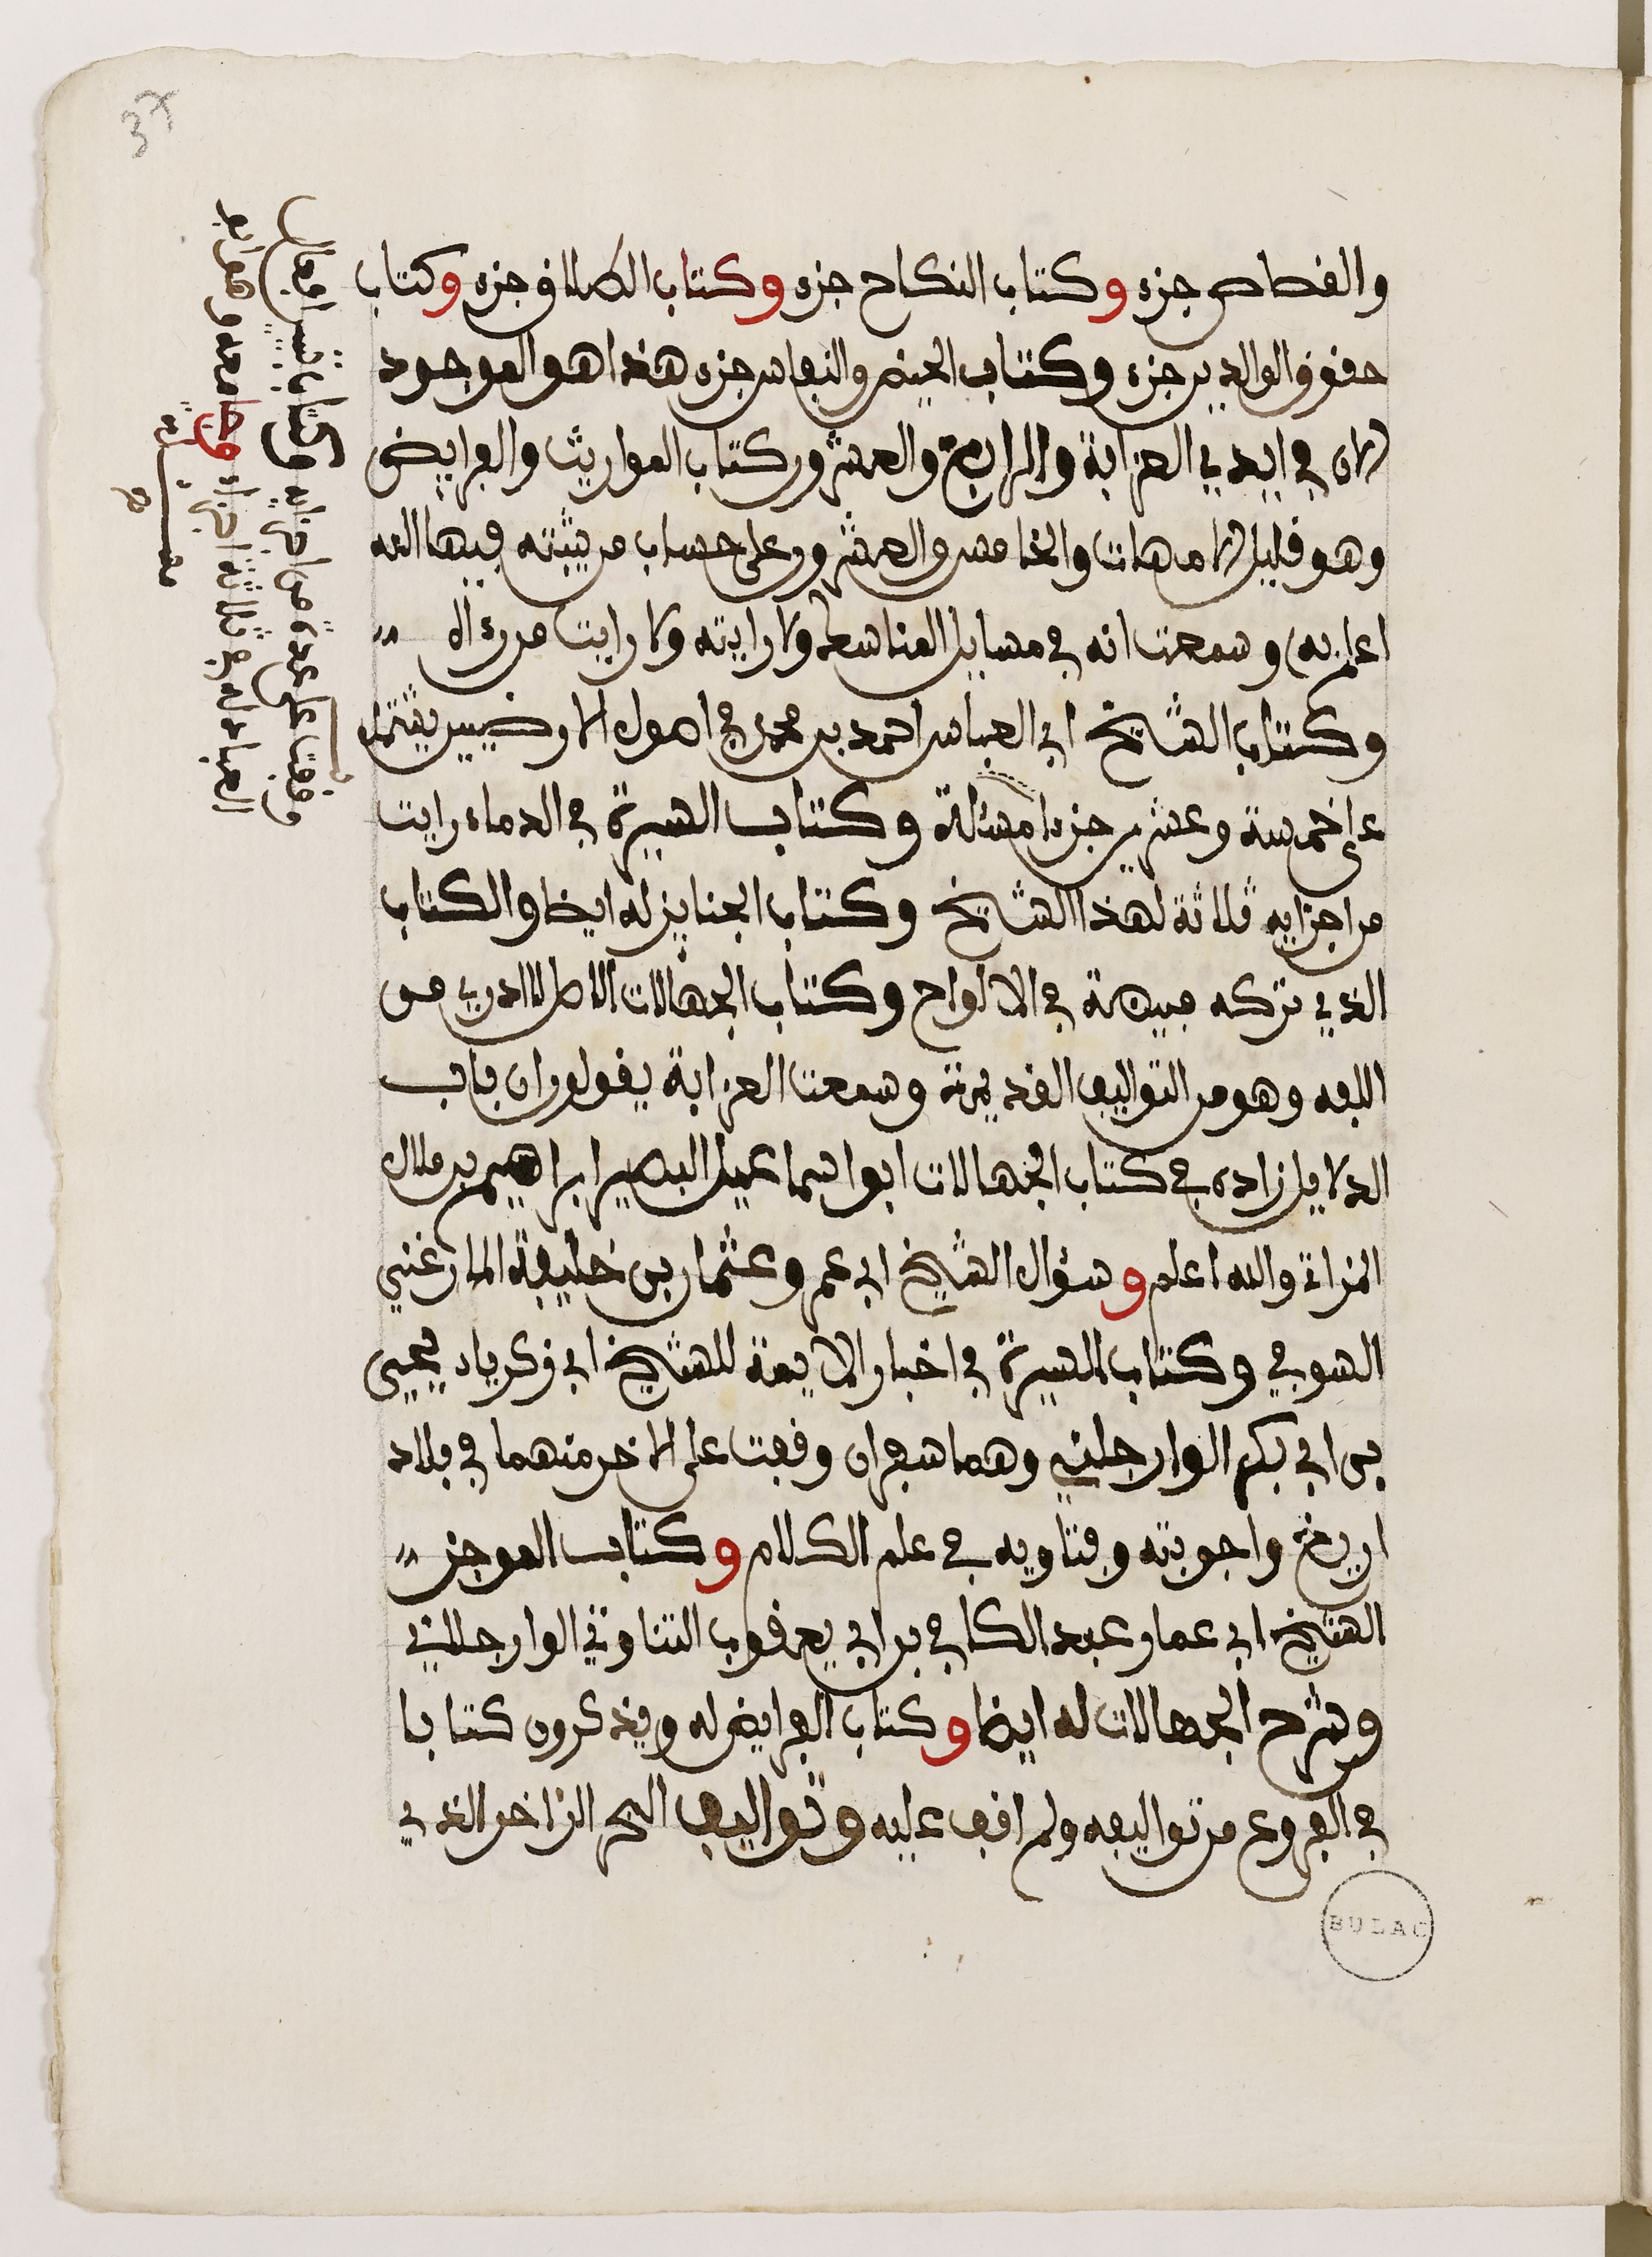 والقصاص جزء وكتاب النكاح جزء وكتاب الطلاق جزء وكتاب
حقوق الوالدين جزء وكتاب الحيض والنفاس جزء هذا هو الموجود
الان في ايدي العزابة والرابع والعشرون كتاب المواريث والفرايض
وهو قليل الامهات والخامس والعشرون على حساب من يثبته فيها الله
اعلم به وسمعت انه في مسايل المناسك ولا رايته ولا رايت من رءاه
وكتاب الشيخ ابي العباس احمد بن محمد في اصول الارضيين يشتمل
على خمسة وعشرين جزءا مسئلة وكتاب السيرة في الدماء رايت
من اجزايه ثلاثة لهذا الشيخ وكتاب الجنايز له ايضا والكتاب
الذي تركه مبيضة في الالواح وكتاب الجهالات الاصل لا ادري من
الفه وهو من التواليف القديمة وسمعت العزابة يقولون ان باب
الدلايل زاده في كتاب الجهالات ابو اسماعيل البصير ابراهيم بن ملال
المزاتي والله اعلم وسؤال الشيخ ابي عمرو عثمان بن خليفة المارغني
السوفي وكتاب السيرة في اخبار الايمة للشيخ ابي زكرياء يحيى
بن ابي بكر الوارجلني وهما سفران وقفت على الاخر منهما في بلاد
اريغ واجوبته وفتاويه في علم الكلام وكتاب الموجز
الشيخ ابي عمار عبد الكافي بن ابي يعقوب التناوتي الوارجلاني
وشرح الجهالات له ايضا وكتاب الفرايض له ويذكرون كتابا
في الفروع من تواليفه ولم اقف عليه وتواليف البحر الزاخر الذي
وقفت على عدة من اجزايه وكتاب
العباد له في ثلاثة اجزاء وجامعه وهو
37
BULAC